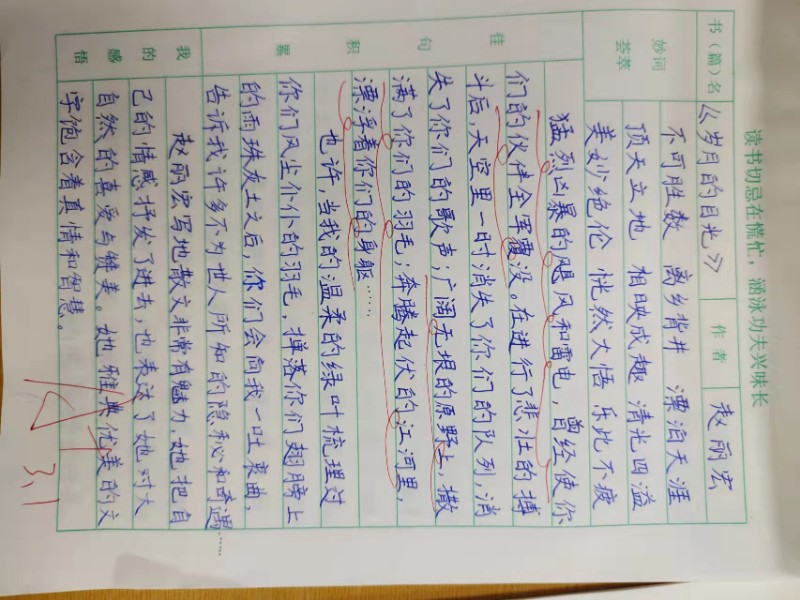 读书切忌在慌忙，涵泳功夫兴味长
书（篇）名 《岁月的目光》 作者 赵丽宏
妙词荟萃
不可胜数 离乡背井 漂泊天涯
顶天立地 相映成趣 清光四溢
美妙绝伦 恍然大悟 乐此不疲
佳句积累
猛烈凶暴的飓风和雷电，曾经使你
们的伙伴全军覆没。在进行了悲壮的搏
斗后，天空里一时消失了你们的队列，消
失了你们的歌声；广阔无垠的原野上，撒
满了你们的羽毛；奔腾起伏的江河里，
漂浮着你们的身躯……
也许，当我的温柔的绿叶梳理过
你们风尘仆仆的羽毛，掸落你们翅膀上
的雨珠灰土之后，你们会向我一吐衷曲，
告诉我许多不为世人所知的隐秘和奇遇……
我的感悟
赵丽宏写地散文非常有魅力，她把自
己的情感抒发了进去，也表达了她对大
自然的喜爱与赞美。她雅典优美的文
字饱含着真情和智慧。
阅
3.1